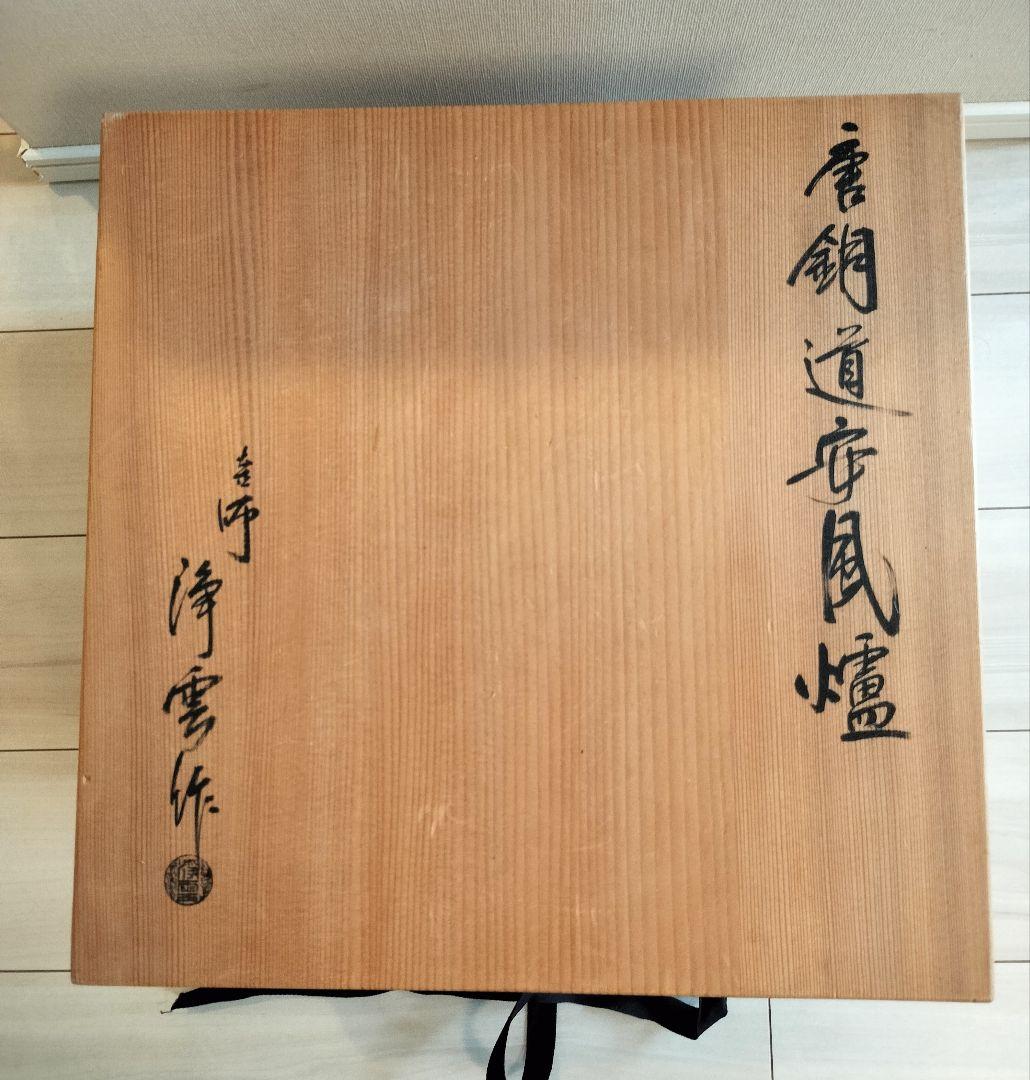 唐銅道安風爐
釜師
浄雲作